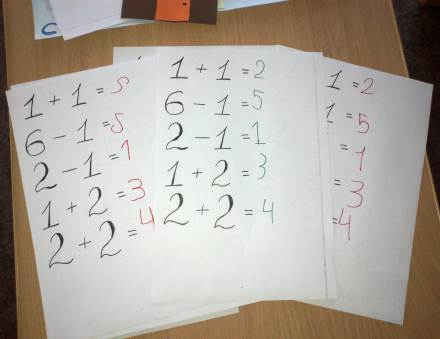 1 + 1 =
6 - 1 = 5
2 - 1 = 1
1 + 2 = 3
2 + 2 = 4
1 + 1 = 2
6 - 1 = 5
2 - 1 = 1
1 + 2 = 3
2 + 2 = 4
1 = 2
1 = 5
= 1
= 3
= 4